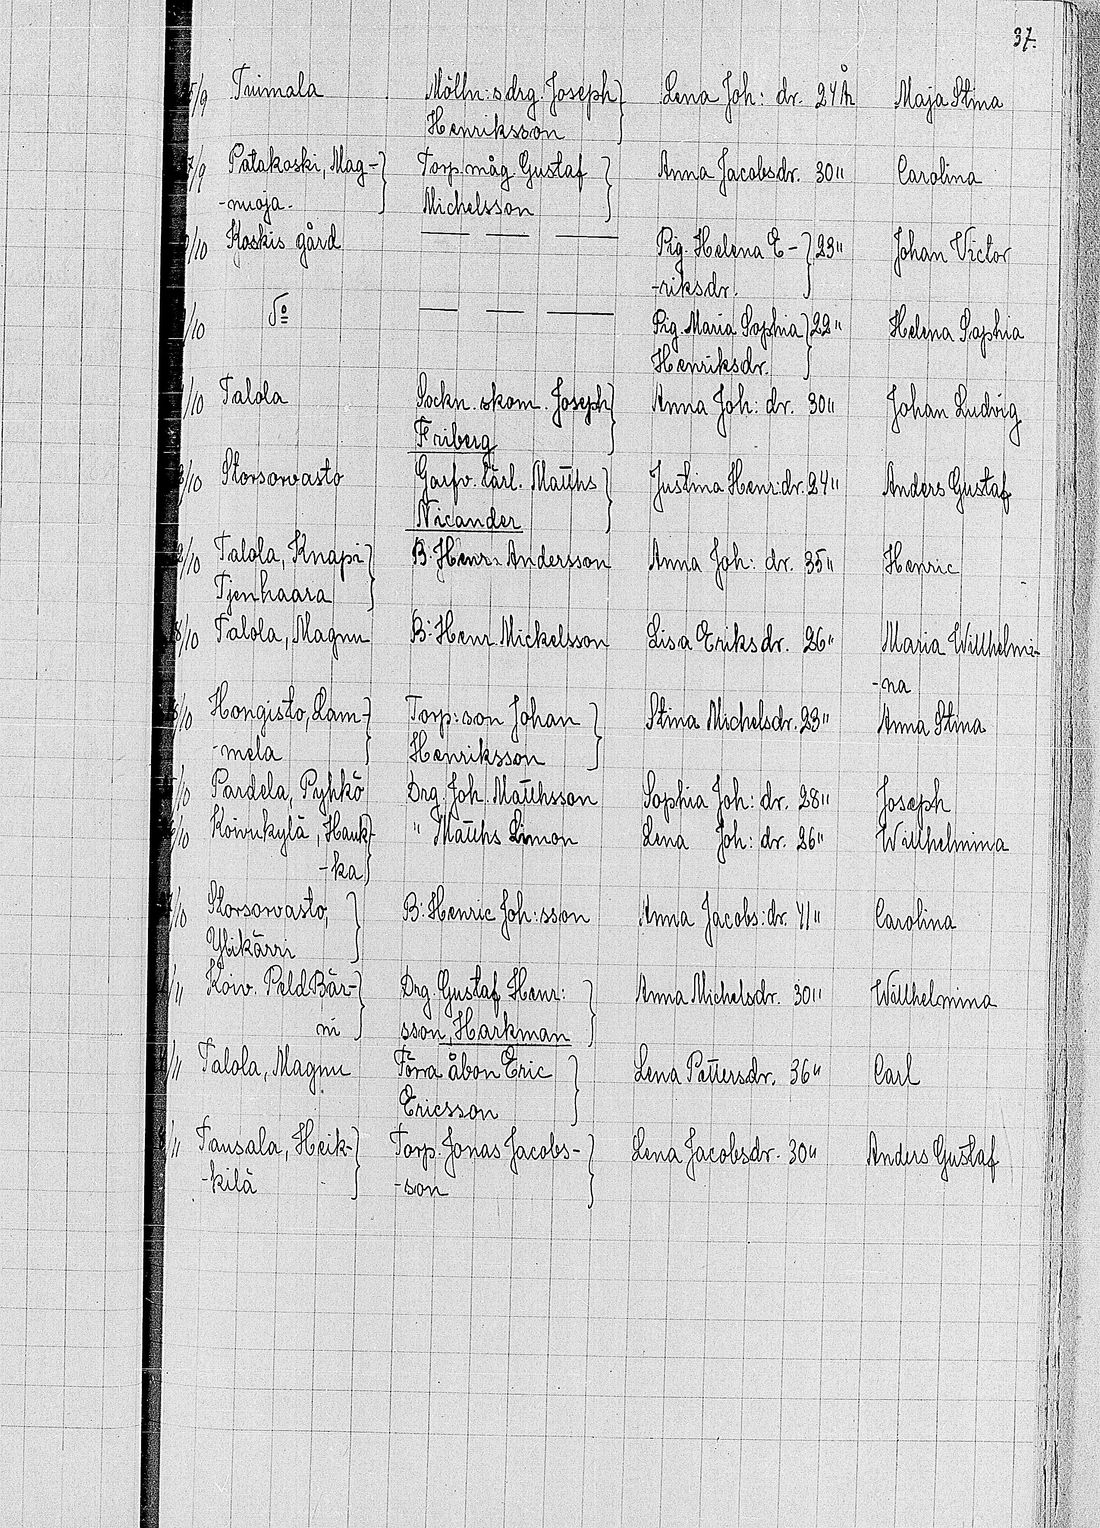 37.
5/9 Tuimala Mölln: s drg. Joseph Lena Joh: dr. 24 år Maja Stina
Henriksson
7/9 Patakoski, Mag- Torp. måg Gustaf Anna Jacobsdr. 30 " Carolina
-nuoja. Michelsson
/10 Koskis gård — — — Pig. Helena E- 23 " Johan Victor
-riksdr.
/10 Do — — — Pig. Maria Sophia 22 " Helena Sophia
Henriksdr.
/10 Talola Sockn. skom. Joseph Anna Joh: dr. 30 " Johan Ludvig
Friberg
/10 Storsorvasto Garfv. lärl. Matths Justina Henr: dr. 24 " Anders Gustaf
Nicander
/10 Talola, Knapi B: Henr: Andersson Anna Joh: dr. 35 " Henric
Tjenhaara
8/10 Talola, Magnu B: Henr. Mickelsson Lisa Eriksdr. 26 " Maria Willhelmi-
-na
/10 Hongisto, Lam- Torp: son Johan Stina Michelsdr. 23 " Anna Stina
-mela Henriksson
/10 Pardela, Pyhkö Drg. Joh. Matthsson Sophia Joh: dr. 28 " Joseph
/10 Koivukylä, Hauk- " Matths Limon Lena Joh: dr. 26 " Willhelmina
-ka
/10 Storsorvasto, B: Henric Joh: sson Anna Jacobs: dr. 41 " Carolina
Ylikärri
/11 Koiv. Peld Bär- Drg. Gustaf Henr: Anna Michelsdr. 30 " Willhelmina
ni sson, Harkman
/11 Talola, Magnu Förra åbon Eric Lena Pettersdr. 36 " Carl
Ericsson
/11 Tausala, Heik- Torp. Jonas Jacobs- Lena Jacobsdr. 30 " Anders Gustaf
-kilä -son